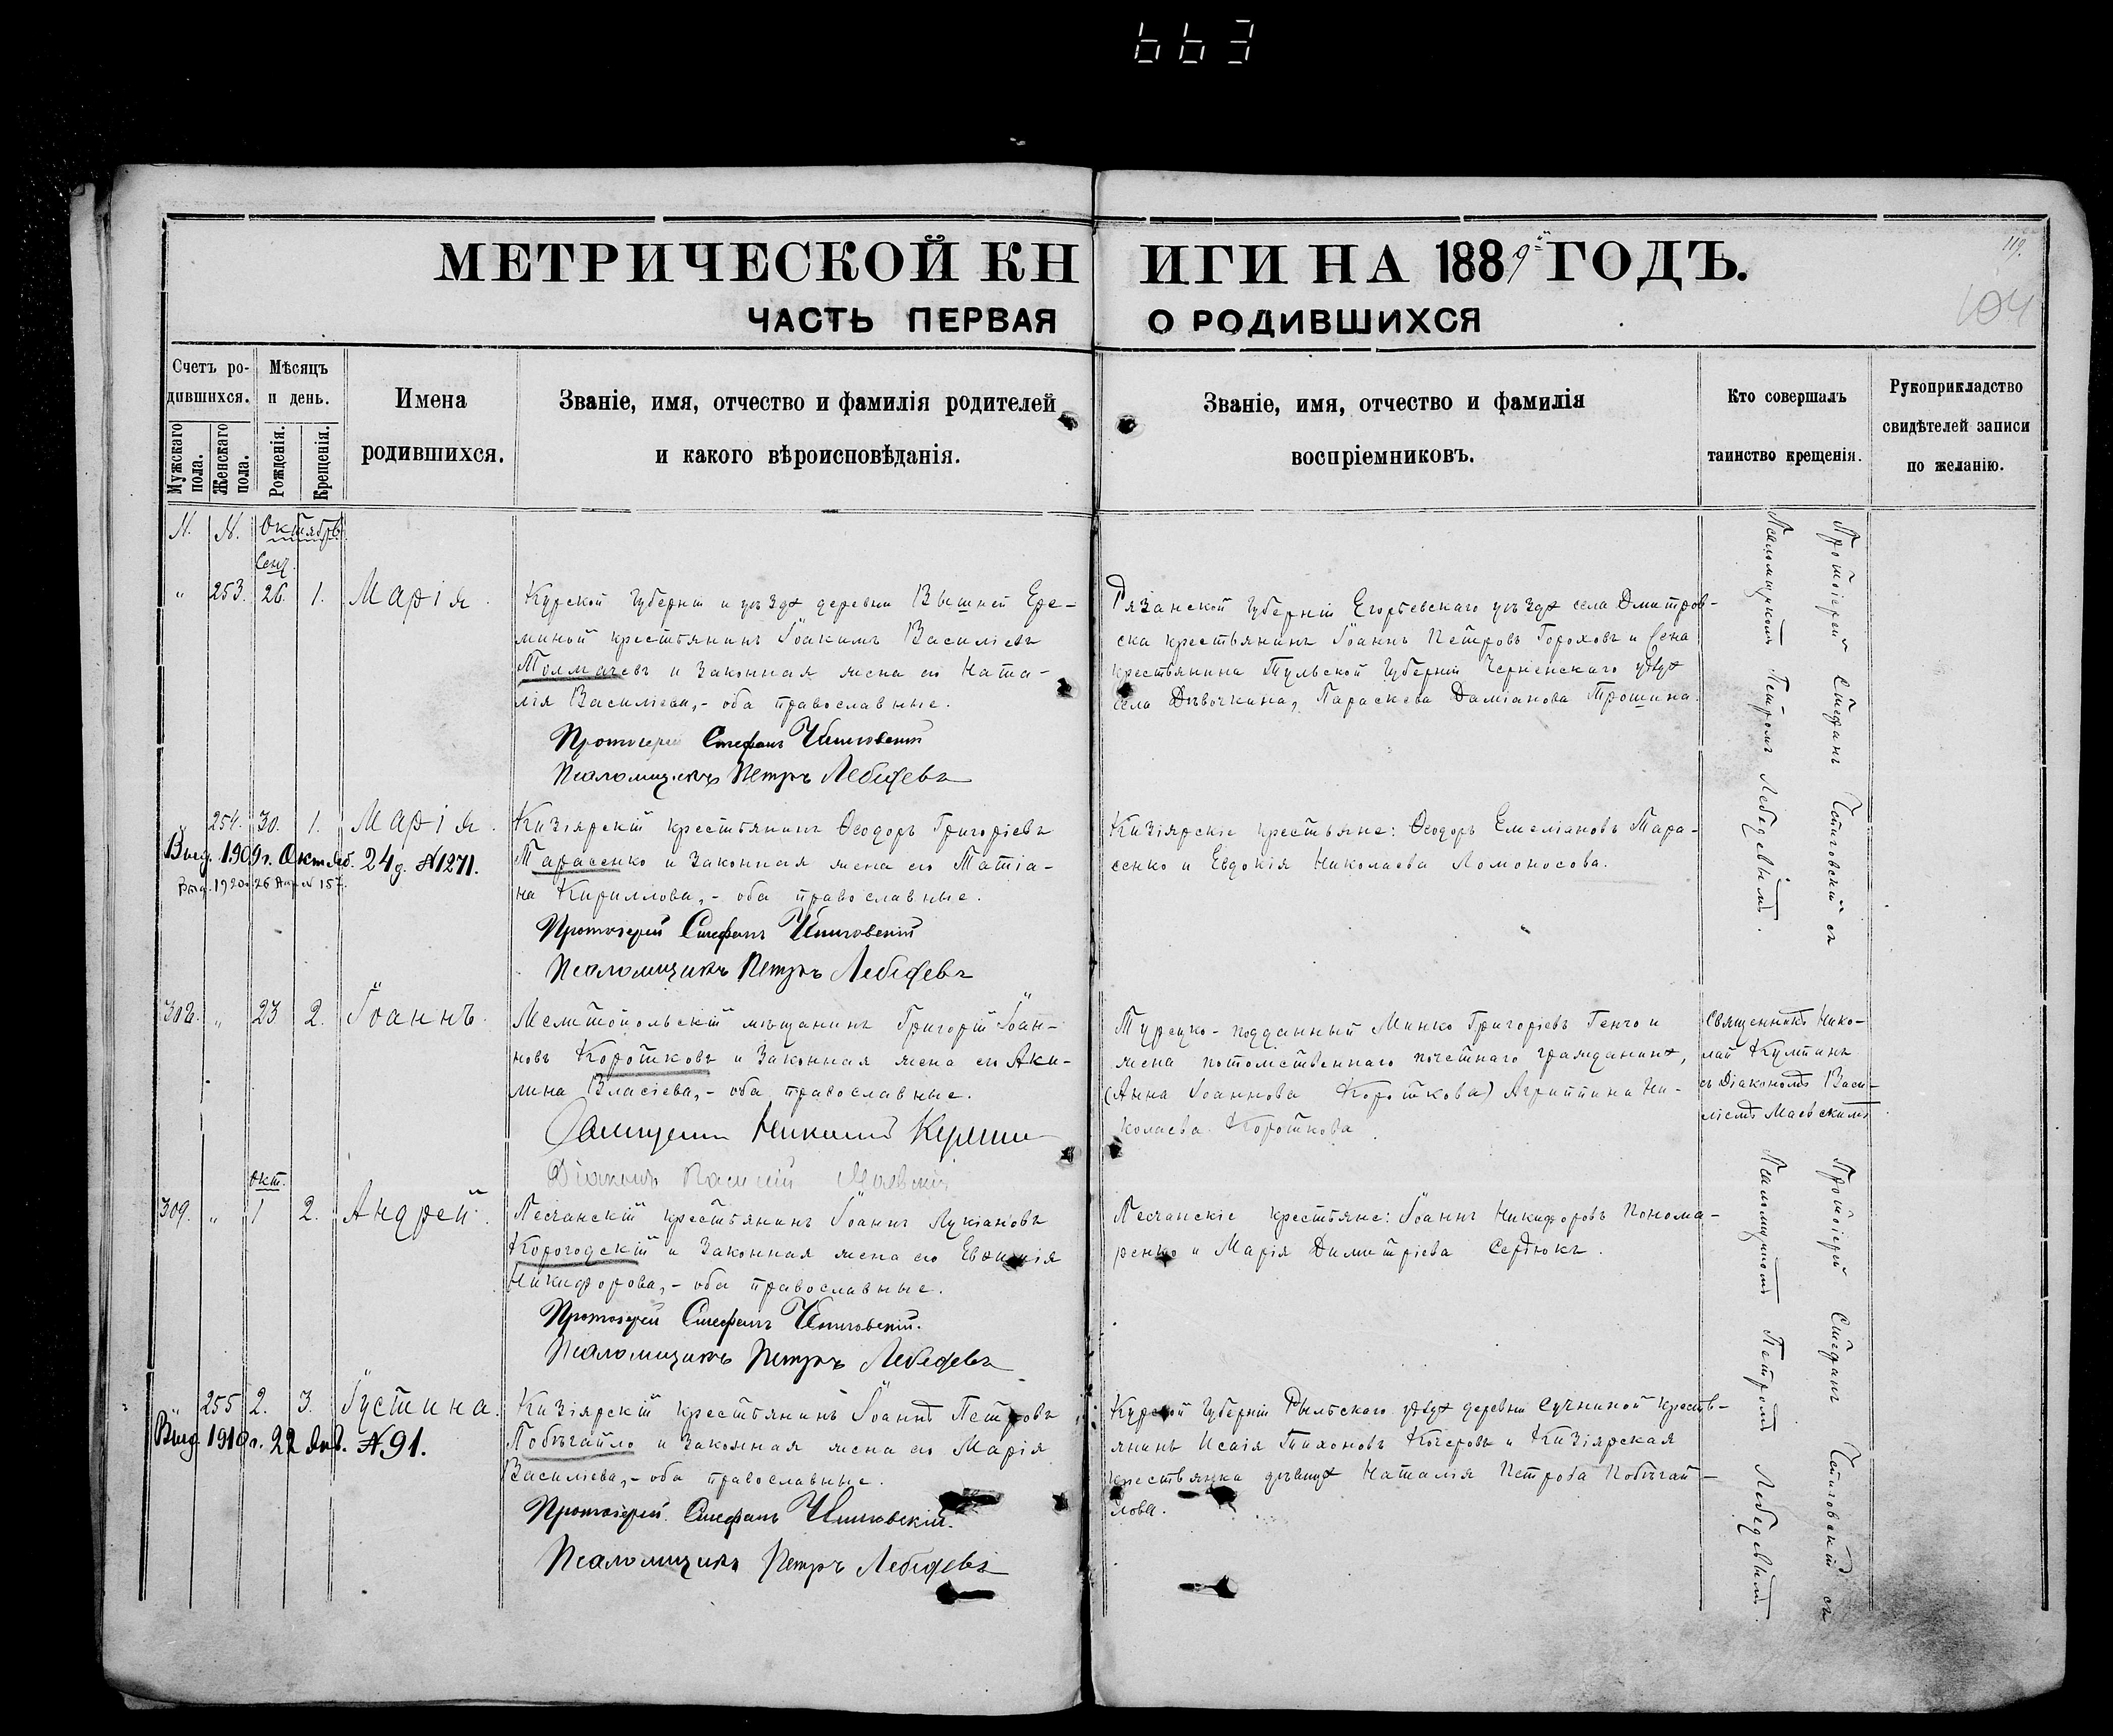 663
МЕТРИЧЕСКОЙ КНИГИ НА 1889й ГОДЪ.
119.
104
ЧАСТЬ ПЕРВАЯ О РОДИВШИХСЯ
Счетъ ро-
дившихся.
Мужскаго пола.
Женскаго пола.
Мѣсяцъ
и день.
Рожденія.
Крещенія.
Имена
родившихся.
Званіе, имя, отчество и фамилія родителей
и какого вѣроисповѣданія.
Званіе, имя, отчество и фамилія
воспріемниковъ.
Кто совершалъ
таинство крещенія.
Рукоприкладство
свидѣтелей записи
по желанію.
N. N. Октябрь
Сент.
" 253. 26. 1. Марія.
Курской губерніи и уѣзда деревни Вышней Ере-
миной крестьянинъ Іоакимъ Василіевъ
Толмачевъ и законная жена его Ната-
лія Василіева,- оба православные.
Протоіерей Стефанъ
Псаломщикъ Петръ Лебедевъ
Рязанской губерніи Егорьевскаго уѣзда села Дмитров-
ска крестьянинъ Іоаннъ Петровъ Гороховъ и
крестьянина Тульской губерніи уѣзда
села Дѣвочкина, Параскева Даміанова Трошина.
Протоіерей Стефанъ съ
Псаломщикомъ Петромъ Лебедевымъ.
254. 30. 1. Марія.
Выд. 1909 г. Октяб. 24 д. N 1271.
Выд. 1920 26 Апр. N 157.
Кизіярскій крестьянинъ Ѳеодоръ Григоріевъ
Тарасенко и законная жена его Татіа-
на Кириллова,- оба православные.
Протоіерей Стефанъ
Псаломщикъ Петръ Лебедевъ
Кизіярскіе крестьяне: Ѳеодоръ Емеліановъ Тара-
сенко и Евдокія Николаева Ломоносова.
308. " 23 2. Іоаннъ.
Мелитопольскій мѣщанинъ Григорій Іоан-
новъ Коротковъ и законная жена его Аки-
лина Власіева,- оба православные.
Священникъ Николай
Діаконъ Василій Маевскій
Турецко-подданный Минко Григоріевъ Генчо и
жена потомственнаго почетнаго гражданина,
(Анна Іоаннова Короткова) Агриппина Ни-
колаева Короткова
Священникъ Нико-
лай
съ Діакономъ Васи-
ліемъ Маевскимъ.
Окт.
309. " 1 2. Андрей.
Песчанскій крестьянинъ Іоаннъ Лукіановъ
Корогодскій и законная жена его Евѳимія
Никифорова,- оба православные.
Протоіерей Стефанъ
Псаломщикъ Петръ Лебедевъ
Песчанскіе крестьяне: Іоаннъ Никифоровъ Понома-
ренко и Марія Димитріева Сердюкъ.
Протоіерей Стефанъ съ
Псаломщикомъ Петромъ Лебедевымъ.
" 255 2. 3. Іустина.
Выд. 1910 г. 22 Янв. N 91.
Кизіярскій крестьянинъ Іоаннъ Петровъ
Побѣгайло и законная жена его Марія
Василіева,- оба православные.
Протоіерей Стефанъ
Псаломщикъ Петръ Лебедевъ
Курской губерніи Рыльскаго уѣзда деревни Сучкиной кресть-
янинъ Исаія Тихоновъ Кочеровъ и Кизіярская
крестьянка дѣвица Наталія Петрова Побѣгай-
лова.